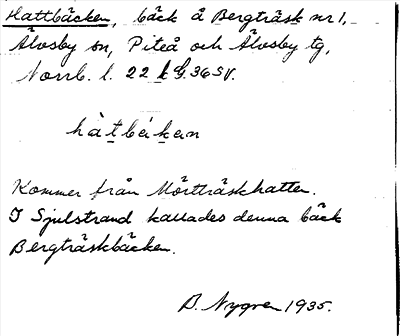 Hattbäcken, bäck å Bergträsk nr 1,
Älvsby sn, Piteå och Älvsby tg,
Norrb. l. 22 k G. 36 SV.
hàtbékan
Kommer från Mörtträskhatten.
I Sjulstrand kallades denna bäck
Bergträskbäcken.
B. Nygren 1935.